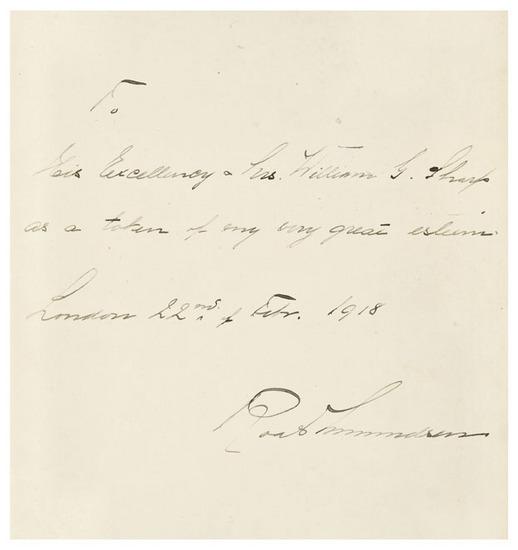 To
His Excellency & Mrs. William G. Sharp
as a token of my very great esteem.
London 22nd. of Febr. 1918
Roald Amundsen